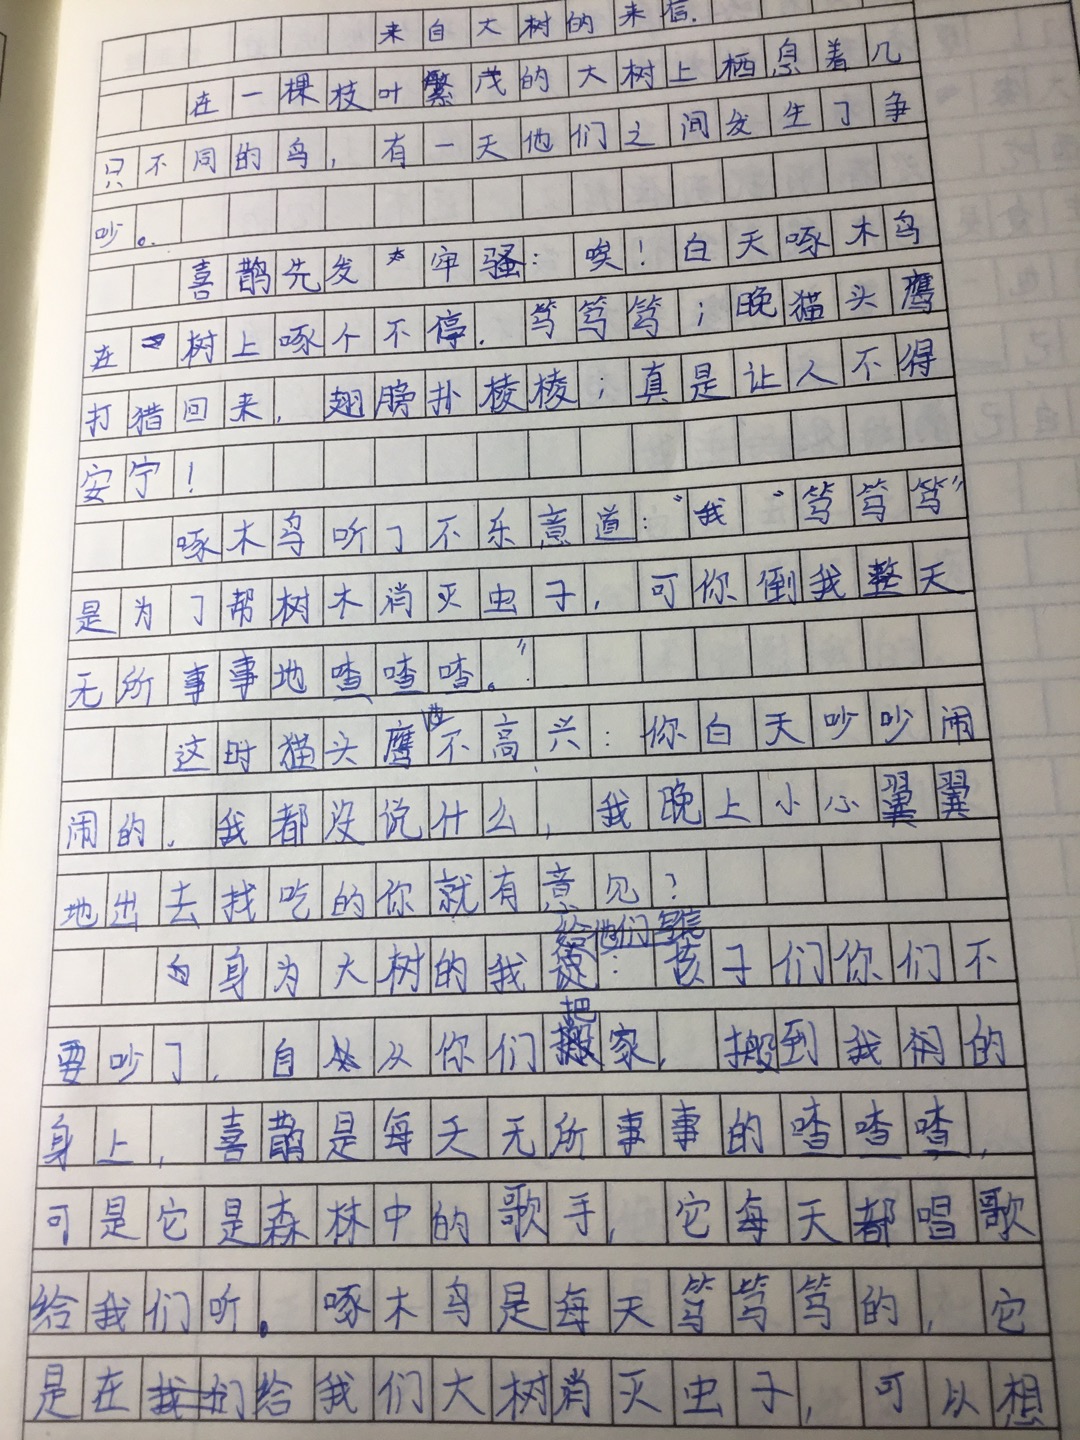 来自大树的来信.
在一棵枝叶繁茂的大树上栖息着几
只不同的鸟,有一天他们之间发生了争
吵。
喜鹊先发大牢骚:唉!白天啄木鸟
在树上啄个不停.笃笃笃;晚猫头鹰
打猎回来,翅膀扑棱棱;真是让人不得
安宁!
啄木鸟听了不乐意道:“我“笃笃笃”
是为了帮树木消灭虫子,可你倒我整天
无所事事地喳喳喳。”
这时猫头鹰也不高兴:你白天吵吵闹
闹的,我都没说什么,我晚上小心翼翼
地出去找吃的你就有意见?
给他们写信
身为大树的我:孩子们你们不
要吵了,自从你们把家,搬到我们的
身上,喜鹊是每天无所事事的喳喳喳,
可是它是森林中的歌手,它每天都唱歌
给我们听。啄木鸟是每天笃笃笃的,它
是在给我们大树消灭虫子,可以想